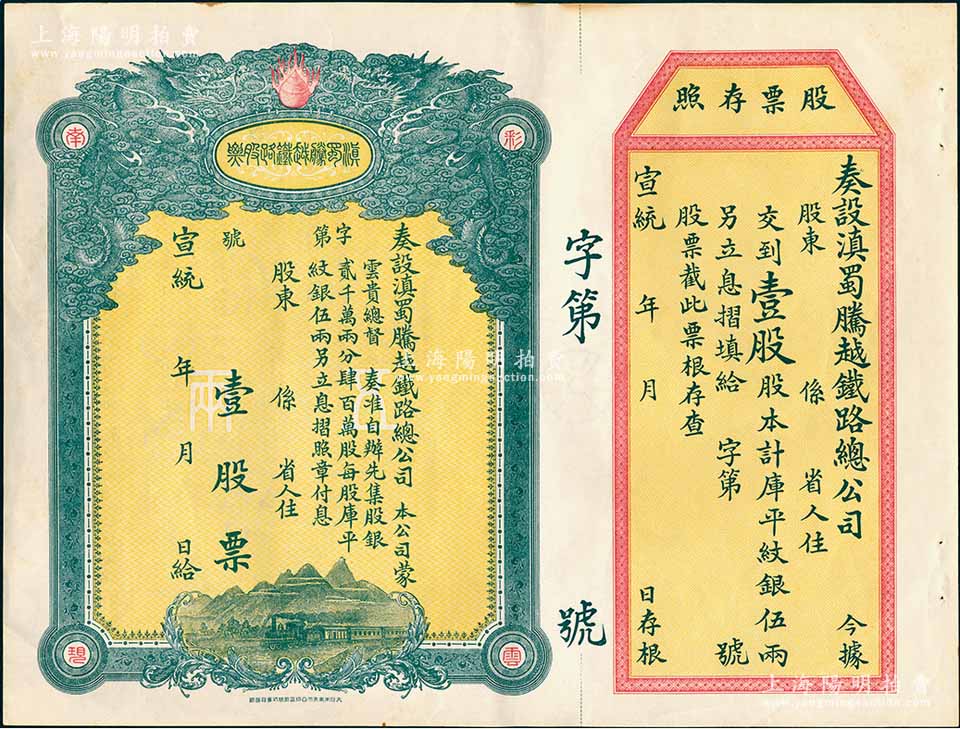 上海陽明拍賣
www.yangmingauction.com
股票存照
奏設滇蜀騰越鐵路總公司 今據
股東 係 省人住
交到壹股股本計庫平紋銀伍兩
另立息摺填給 字第 號
股票截此票根存查
宣統 年 月 日存根
字第 號
彩
南
雲
現
滇蜀騰越鐵路股票
奏設滇蜀騰越鐵路總公司 本公司蒙
雲貴總督 奏准自辦先集股銀
貳千萬兩分肆百萬股每股庫平
紋銀伍兩另立息摺照章付息
字第 號
股東 係 省人住
壹股票
宣統 年 月 日給
伍
兩
上海陽明拍賣
www.yangmingauction.com
上海陽明拍賣
www.yangmingauction.com